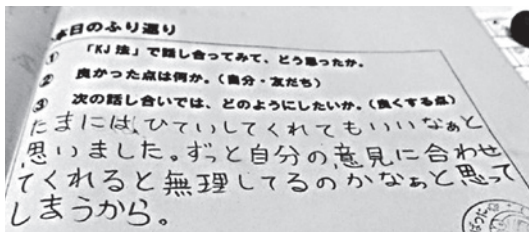 本日のふり返り
① 「KJ法」で話し合ってみて、どう思ったか。
② 良かった点は何か。(自分・友だち)
③ 次の話し合いでは、どのようにしたいか。(良くする点)
たまには、ひていしてくれてもいいなぁと
思いました。ずっと自分の意見に合わせ
てくれると無理してるのかなぁと思って
しまうから。